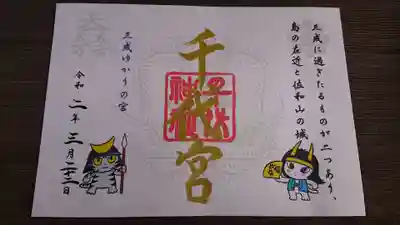 三成に過ぎたるものが二つあり、
島の左近と佐和山の城
千代宮
三成ゆかりの宮
令和二年三月二十二日